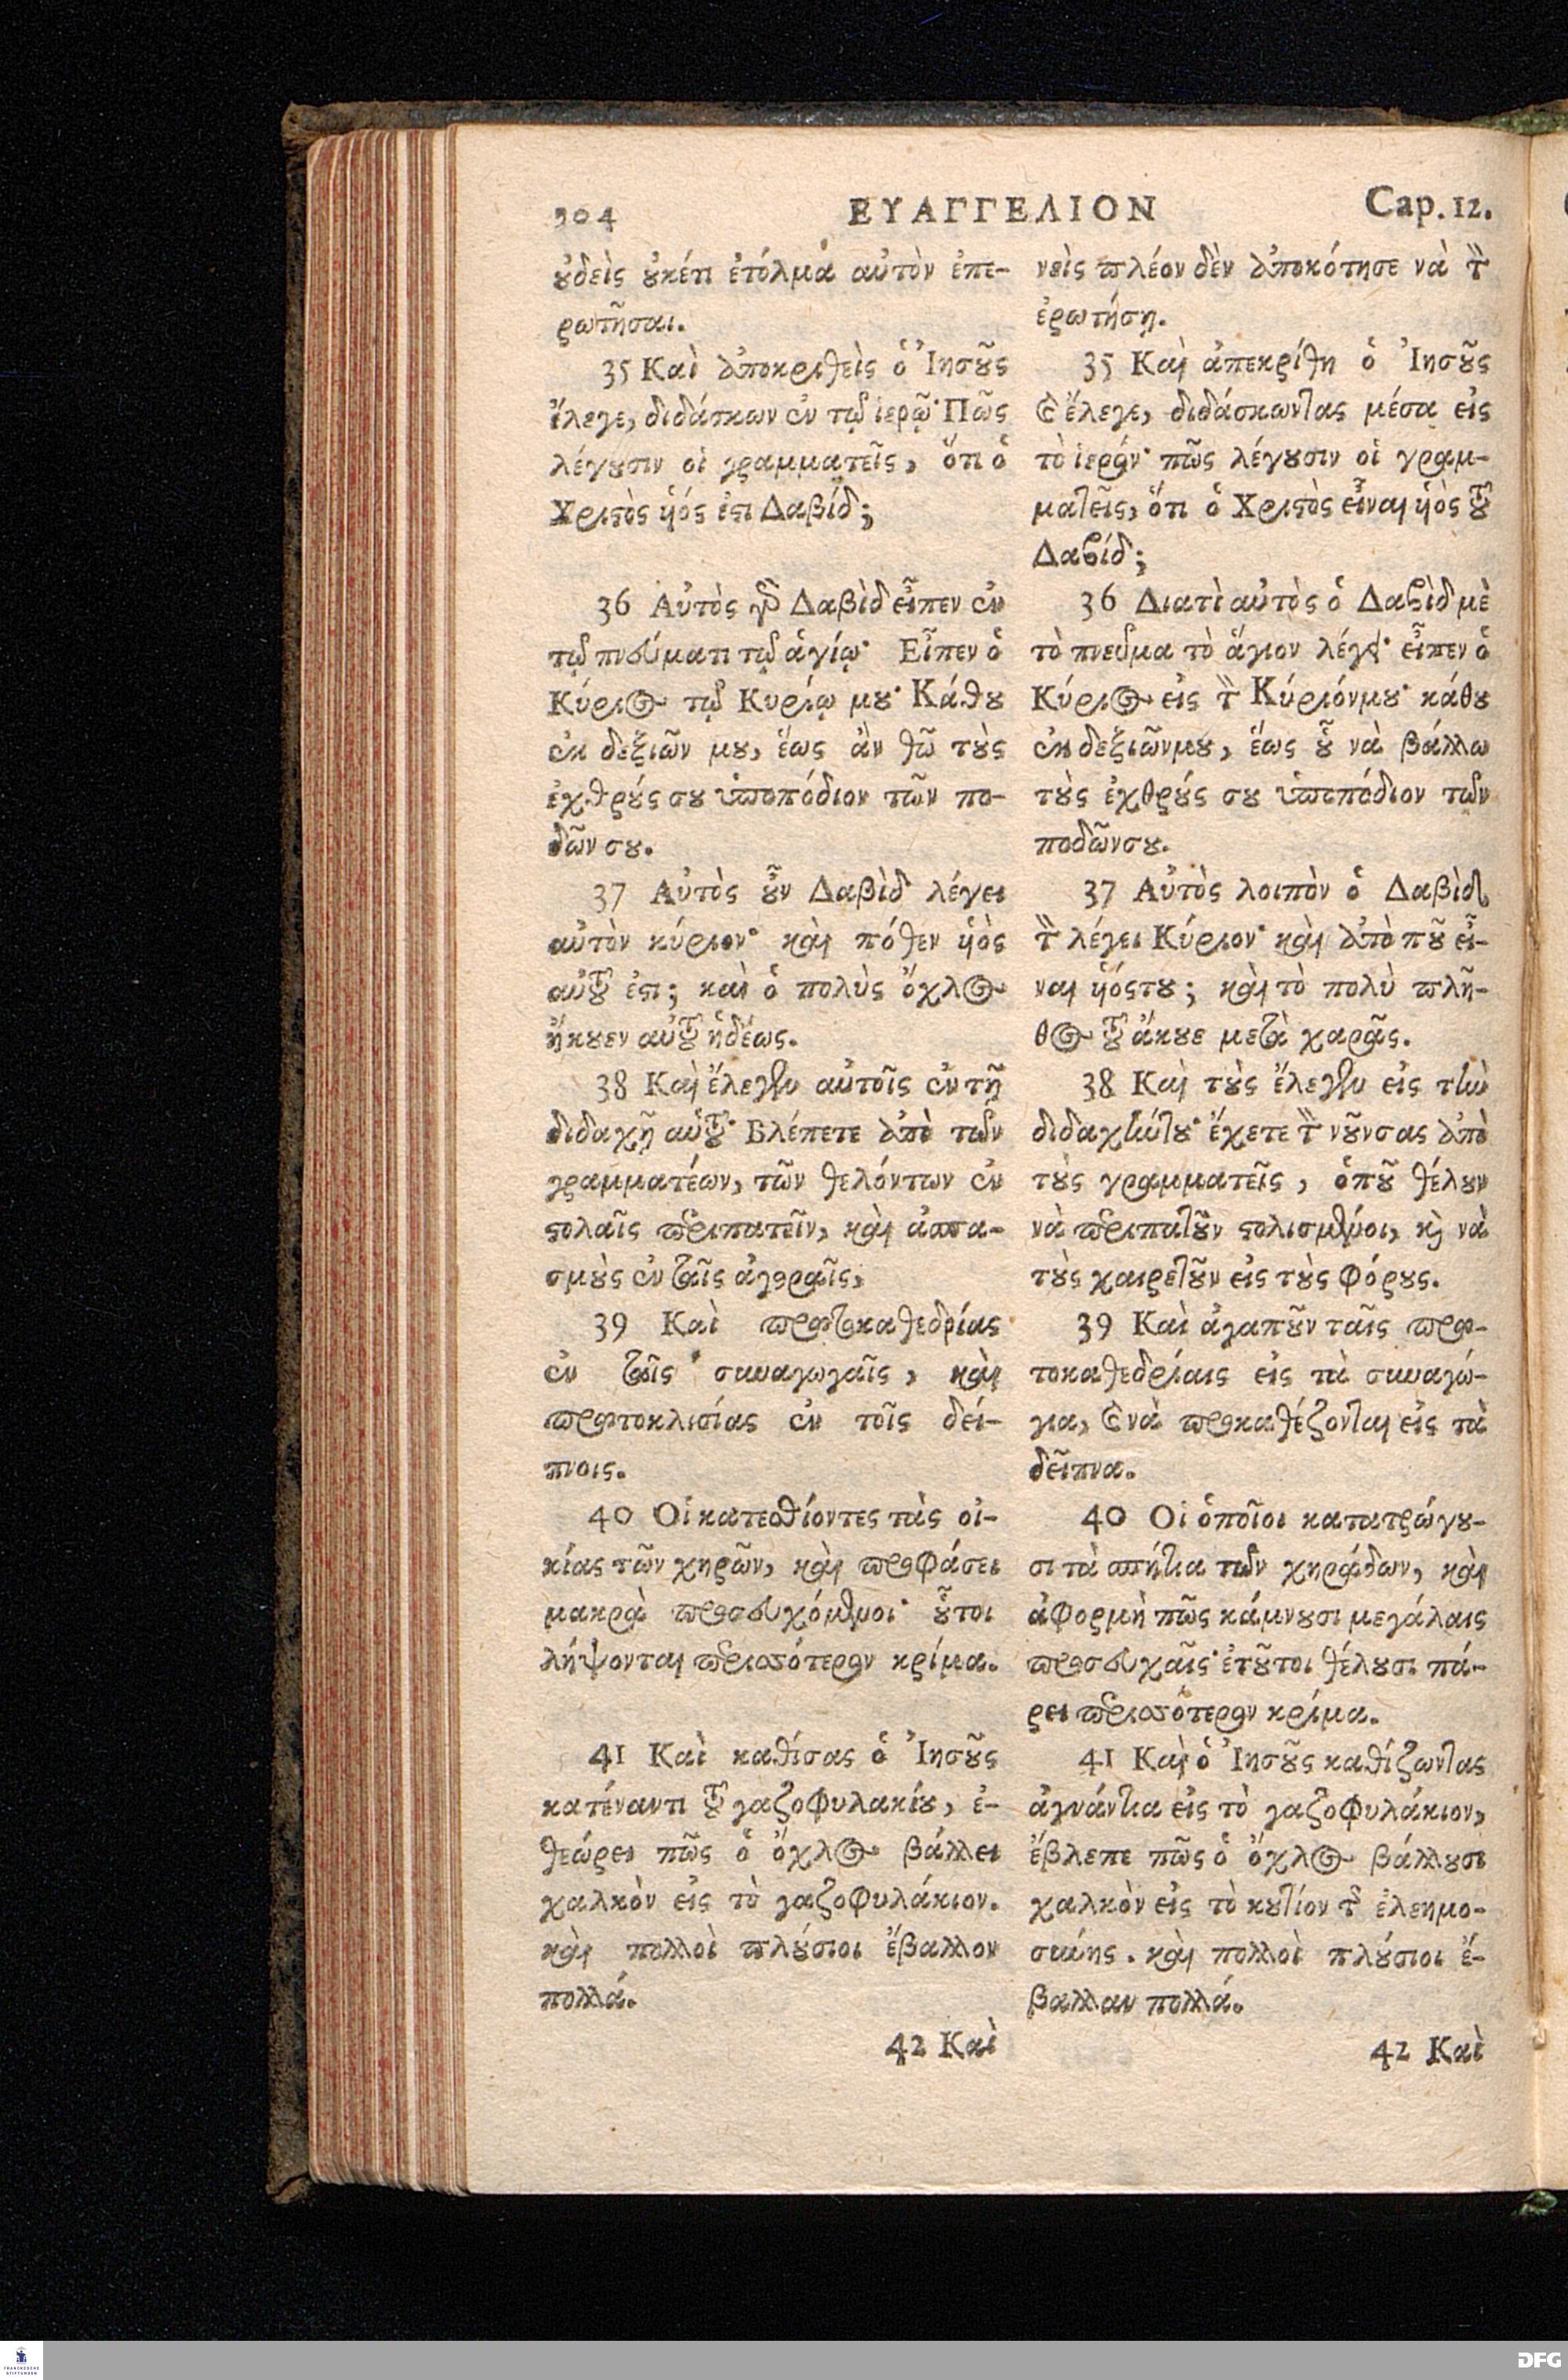 304 ΕΥΑΓΓΕΛΙΟΝ Cap. 12.
ȣ̓δεὶς ȣ̓κέτι ἐτόλμα αὐτὸν ἐπε-
ρωτῆσαι.
35 Καὶ ἀποκριθεὶς ὁ Ἰησȣ͂ς
ἔλεγε, διδάσκων ἐν τῷ ἱερῷ· Πῶς
λέγȣσιν οἱ γραμματεῖς, ὅτι ὁ
Χριϛὸς ἡός ἐϛι Δαβίδ;
36 Αὐτὸς γὸ Δαβὶδ εἶπεν ἐν
τῷ πνεύματι τῷ ἁγίῳ· Εἶπεν ὁ
Κύριος τῷ Κυρίῳ μȣ· Κάθȣ
ἐκ δεξιῶν μȣ, ἕως ἂν θῶ τȣ̀ς
ἐχθρȣ́ς σȣ ὑποπόδιον τῶν πο-
δῶν σȣ.
37 Αὐτὸς ȣ̓͂ν Δαβὶδ λέγει
αὐτὸν κύριον· καὶ πόθεν ἡὸς
αὐτȣ͂ ἐϛι; καὶ ὁ πολὺς ὄχλος
ἤκȣεν αὐτȣ͂ ἡδέως.
38 Καὶ ἔλεγεν αὐτοῖς ἐν τῇ
διδαχῇ αὑτȣ͂· Βλέπετε ἀπὸ τῶν
γραμματέων, τῶν θελόντων ἐν
ϛολαῖς περιπατεῖν, καὶ ἀσπα-
σμȣ̀ς ἐν ταῖς ἀγοραῖς,
39 Καὶ πρωτοκαθεδρίας
ἐν ταῖς συναγωγαῖς, καὶ
πρωτοκλισίας ἐν τοῖς δεί-
πνοις.
40 Οἱ κατεσθίοντες τὰς οἰ-
κίας τῶν χηρῶν, καὶ προφάσει
μακρὰ προσευχόμενοι· ȣ̔͂τοι
λήψονται περισσότερον κρίμα.
41 Καὶ καθίσας ὁ Ἰησȣ͂ς
κατέναντι τȣ͂ γαζοφυλακίȣ, ἐ-
θεώρει πῶς ὁ ὄχλος βάλλει
χαλκὸν εἰς τὸ γαζοφυλάκιον.
καὶ πολλοὶ πλȣ́σιοι ἔβαλλον
πολλά.
42 Καὶ
νεὶς πλέον δὲν ἀποκότησε νὰ τὸν
ἐρωτήσῃ.
35 Καὶ ἀπεκρίθη ὁ Ἰησȣ͂ς
καὶ ἔλεγε, διδάσκωντας μέσα εἰς
τὸ ἱερόν· πῶς λέγȣσιν οἱ γραμ-
ματεῖς, ὅτι ὁ Χριϛὸς εἶναι ἡὸς τȣ͂
Δαβίδ;
36 Διατὶ αὐτὸς ὁ Δαβὶδ μὲ
τὸ πνεῦμα τὸ ἅγιον λέγει· εἶπεν ὁ
Κύριος εἰς τὸν Κύριόνμȣ· κάθȣ
ἐκ δεξιῶνμȣ, ἕως ȣ̔͂ νὰ βάλλω
τȣ̀ς ἐχθρȣ́ς σȣ ὑποπόδιον τῶν
ποδῶνσȣ.
37 Αὐτὸς λοιπὸν ὁ Δαβὶδ
τὸν λέγει Κύριον· καὶ ἀπὸ πȣ͂ εἶ-
ναι ἡόςτȣ; καὶ τὸ πολὺ πλῆ-
θος τȣ͂ ἄκȣε μετὰ χαρᾶς.
38 Καὶ τȣ̀ς ἔλεγεν εἰς τὴν
διδαχήντȣ· ἔχετε τὸν νȣ͂νσας ἀπὸ
τȣ̀ς γραμματεῖς, ὁπȣ͂ θέλȣν
νὰ περιπατȣ͂ν ϛολισμένοι, κὶ νὰ
τȣ̀ς χαιρετȣ͂ν εἰς τȣ̀ς φόρȣς.
39 Καὶ ἀγαπȣ͂ν ταῖς πρω-
τοκαθεδρίαις εἰς τὰ συναγώ-
για, καὶ νὰ προκαθέζονται εἰς τὰ
δεῖπνα.
40 Οἱ ὁποῖοι κατατρώγȣ-
σι τὰ σπήτια τῶν χηράδων, καὶ
ἀφορμὴ πῶς κάμνȣσι μεγάλαις
προσευχαῖς· ἐτȣ͂τοι θέλȣσι πά-
ρει περισσότερον κρίμα.
41 Καὶ ὁ Ἰησȣ͂ς καθίζωντας
ἀγνάντια εἰς τὸ γαζοφυλάκιον,
ἔβλεπε πῶς ὁ ὄχλος βάλλȣσι
χαλκὸν εἰς τὸ κȣτίον τῆς ἐλεημο-
σύνης. καὶ πολλοὶ πλȣ́σιοι ἔ-
βαλλαν πολλά.
42 Καὶ
FRANCKESCHE
STIFTUNGEN
DFG